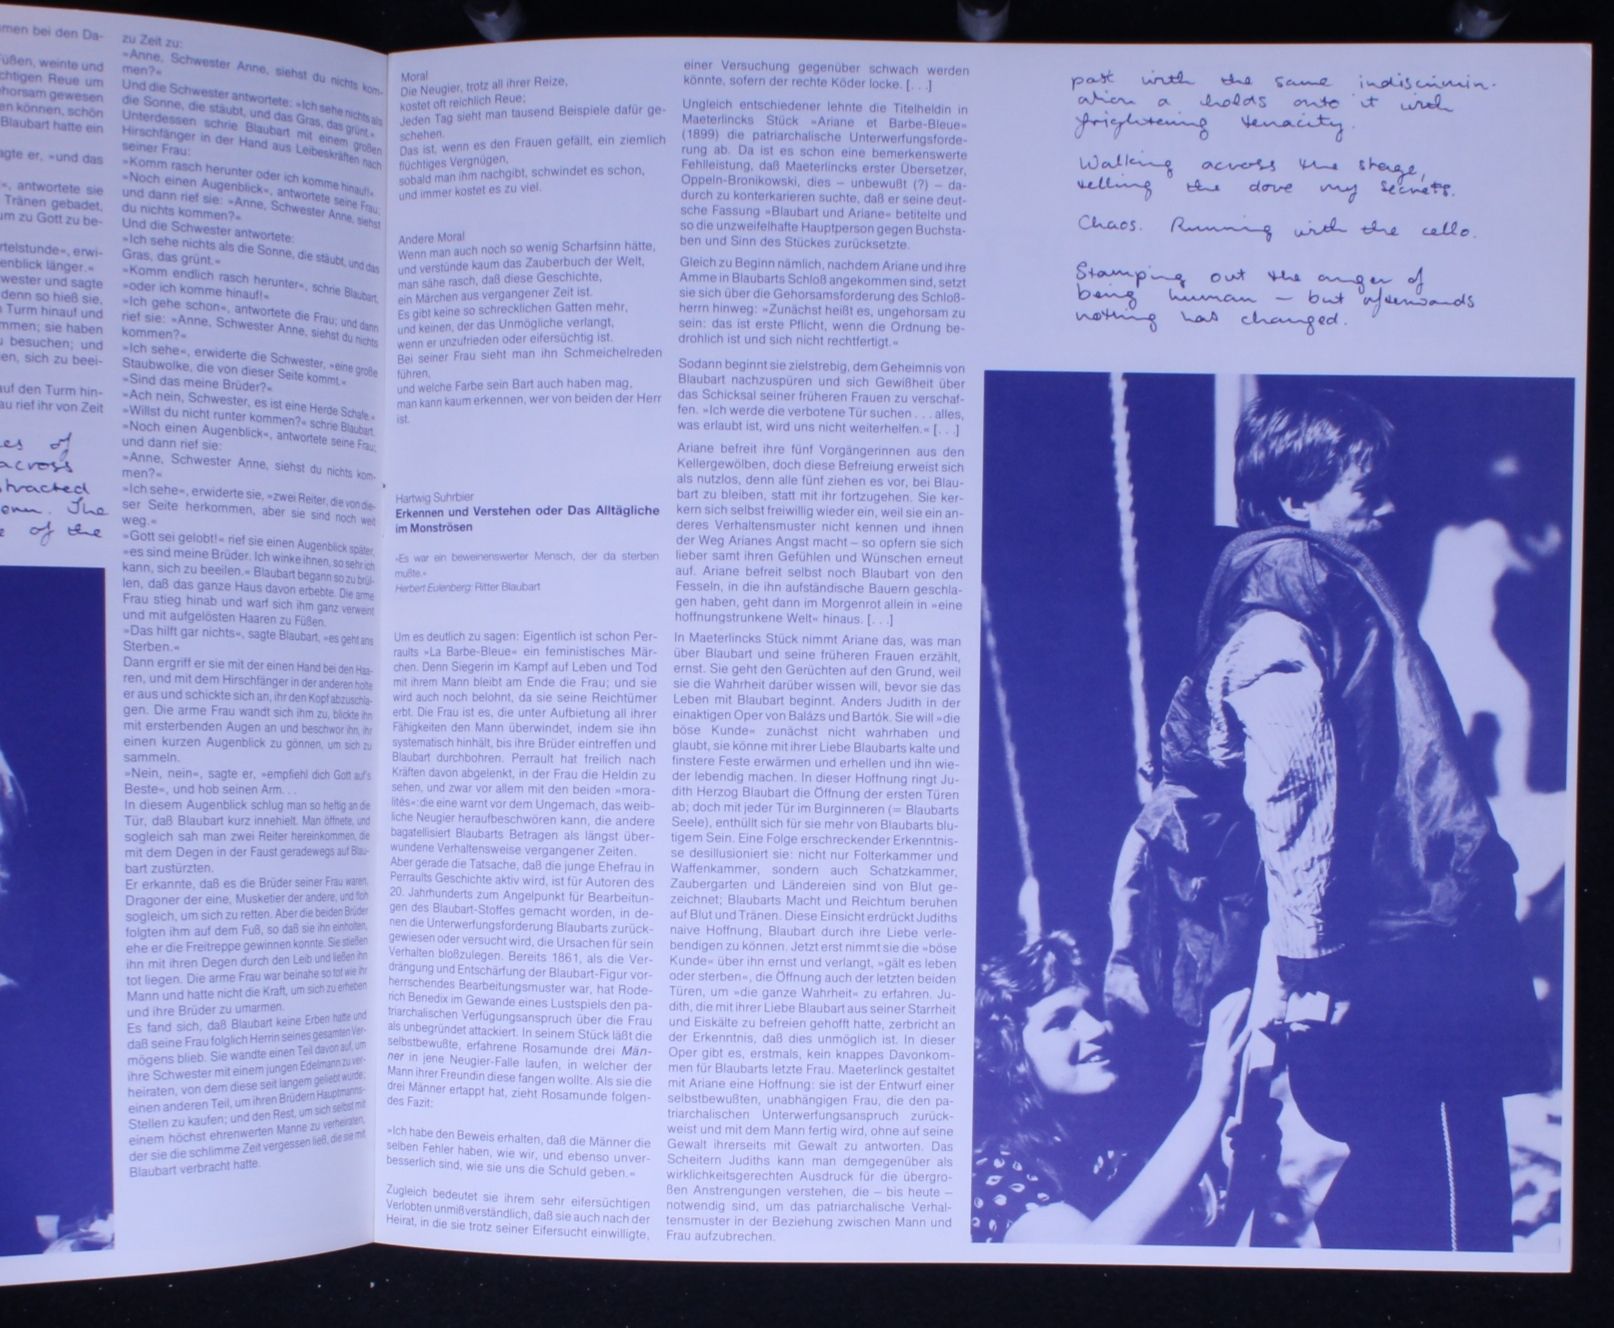 men bei den Da-
üßen, weinte und
chtigen Reue um
horsam gewesen
en können, schön
Blaubart hatte ein
agte er, »und das
«, antwortete sie
Tränen gebadet,
um zu Gott zu be-
rtelstunde«, erwi-
enblick länger.«
wester und sagte
denn so hieß sie,
Turm hinauf und
mmen; sie haben
u besuchen; und
en, sich zu beei-
auf den Turm hin-
au rief ihr von Zeit
es of
across
stracted
The
of the
zu Zeit zu:
»Anne, Schwester Anne, siehst du nichts kom-
men?«
Und die Schwester antwortete: »Ich sehe nichts als
die Sonne, die stäubt, und das Gras, das grünt.«
Unterdessen schrie Blaubart mit einem großen
Hirschfänger in der Hand aus Leibeskräften nach
seiner Frau:
»Komm rasch herunter oder ich komme hinauf!«
»Noch einen Augenblick«, antwortete seine Frau;
und dann rief sie: »Anne, Schwester Anne, siehst
du nichts kommen?«
Und die Schwester antwortete:
»Ich sehe nichts als die Sonne, die stäubt, und das
Gras, das grünt.«
»Komm endlich rasch herunter«, schrie Blaubart,
»oder ich komme hinauf!«
»Ich gehe schon«, antwortete die Frau; und dann
rief sie: »Anne, Schwester Anne, siehst du nichts
kommen?«
»Ich sehe«, erwiderte die Schwester, »eine große
Staubwolke, die von dieser Seite kommt.«
»Sind das meine Brüder?«
»Ach nein, Schwester, es ist eine Herde Schafe.«
»Willst du nicht runter kommen?« schrie Blaubart.
»Noch einen Augenblick«, antwortete seine Frau;
und dann rief sie:
»Anne, Schwester Anne, siehst du nichts kom-
men?«
»Ich sehe«, erwiderte sie, »zwei Reiter, die von die-
ser Seite herkommen, aber sie sind noch weit
weg.«
»Gott sei gelobt!« rief sie einen Augenblick später,
»es sind meine Brüder. Ich winke ihnen, so sehr ich
kann, sich zu beeilen.« Blaubart begann so zu brül-
len, daß das ganze Haus davon erbebte. Die arme
Frau stieg hinab und warf sich ihm ganz verweint
und mit aufgelösten Haaren zu Füßen.
»Das hilft gar nichts«, sagte Blaubart, »es geht ans
Sterben.«
Dann ergriff er sie mit der einen Hand bei den Haa-
ren, und mit dem Hirschfänger in der anderen holte
er aus und schickte sich an, ihr den Kopf abzuschla-
gen. Die arme Frau wandt sich ihm zu, blickte ihn
mit ersterbenden Augen an und beschwor ihn, ihr
einen kurzen Augenblick zu gönnen, um sich zu
sammeln.
»Nein, nein«, sagte er, »empfiehl dich Gott auf's
Beste«, und hob seinen Arm. . .
In diesem Augenblick schlug man so heftig an die
Tür, daß Blaubart kurz innehielt. Man öffnete, und
sogleich sah man zwei Reiter hereinkommen, die
mit dem Degen in der Faust geradewegs auf Blau-
bart zustürzten.
Er erkannte, daß es die Brüder seiner Frau waren,
Dragoner der eine, Musketier der andere, und floh
sogleich, um sich zu retten. Aber die beiden Brüder
folgten ihm auf dem Fuß, so daß sie ihn einholten,
ehe er die Freitreppe gewinnen konnte. Sie stießen
ihn mit ihren Degen durch den Leib und ließen ihn
tot liegen. Die arme Frau war beinahe so tot wie ihr
Mann und hatte nicht die Kraft, um sich zu erheben
und ihre Brüder zu umarmen.
Es fand sich, daß Blaubart keine Erben hatte und
daß seine Frau folglich Herrin seines gesamten Ver-
mögens blieb. Sie wandte einen Teil davon auf, um
ihre Schwester mit einem jungen Edelmann zu ver-
heiraten, von dem diese seit langem geliebt wurde;
einen anderen Teil, um ihren Brüdern Hauptmanns-
Stellen zu kaufen; und den Rest, um sich selbst mit
einem höchst ehrenwerten Manne zu verheiraten,
der sie die schlimme Zeit vergessen ließ, die sie mit
Blaubart verbracht hatte.
Moral
Die Neugier, trotz all ihrer Reize,
kostet oft reichlich Reue;
Jeden Tag sieht man tausend Beispiele dafür ge-
schehen.
Das ist, wenn es den Frauen gefällt, ein ziemlich
flüchtiges Vergnügen,
sobald man ihm nachgibt, schwindet es schon,
und immer kostet es zu viel.
Andere Moral
Wenn man auch noch so wenig Scharfsinn hätte,
und verstünde kaum das Zauberbuch der Welt,
man sähe rasch, daß diese Geschichte,
ein Märchen aus vergangener Zeit ist.
Es gibt keine so schrecklichen Gatten mehr,
und keinen, der das Unmögliche verlangt,
wenn er unzufrieden oder eifersüchtig ist.
Bei seiner Frau sieht man ihn Schmeichelreden
führen,
und welche Farbe sein Bart auch haben mag,
man kann kaum erkennen, wer von beiden der Herr
ist.
Hartwig Suhrbier
Erkennen und Verstehen oder Das Alltägliche
im Monströsen
»Es war ein beweinenswerter Mensch, der da sterben
mußte.«
Herbert Eulenberg: Ritter Blaubart
Um es deutlich zu sagen: Eigentlich ist schon Per-
raults »La Barbe-Bleue« ein feministisches Mär-
chen. Denn Siegerin im Kampf auf Leben und Tod
mit ihrem Mann bleibt am Ende die Frau; und sie
wird auch noch belohnt, da sie seine Reichtümer
erbt. Die Frau ist es, die unter Aufbietung all ihrer
Fähigkeiten den Mann überwindet, indem sie ihn
systematisch hinhält, bis ihre Brüder eintreffen und
Blaubart durchbohren. Perrault hat freilich nach
Kräften davon abgelenkt, in der Frau die Heldin zu
sehen, und zwar vor allem mit den beiden »mora-
lités«: die eine warnt vor dem Ungemach, das weib-
liche Neugier heraufbeschwören kann, die andere
bagatellisiert Blaubarts Betragen als längst über-
wundene Verhaltensweise vergangener Zeiten.
Aber gerade die Tatsache, daß die junge Ehefrau in
Perraults Geschichte aktiv wird, ist für Autoren des
20. Jahrhunderts zum Angelpunkt für Bearbeitun-
gen des Blaubart-Stoffes gemacht worden, in de-
nen die Unterwerfungsforderung Blaubarts zurück-
gewiesen oder versucht wird, die Ursachen für sein
Verhalten bloßzulegen. Bereits 1861, als die Ver-
drängung und Entschärfung der Blaubart-Figur vor-
herrschendes Bearbeitungsmuster war, hat Rode-
rich Benedix im Gewande eines Lustspiels den pa-
triarchalischen Verfügungsanspruch über die Frau
als unbegründet attackiert. In seinem Stück läßt die
selbstbewußte, erfahrene Rosamunde drei Män-
ner in jene Neugier-Falle laufen, in welcher der
Mann ihrer Freundin diese fangen wollte. Als sie die
drei Männer ertappt hat, zieht Rosamunde folgen-
des Fazit:
»Ich habe den Beweis erhalten, daß die Männer die
selben Fehler haben, wie wir, und ebenso unver-
besserlich sind, wie sie uns die Schuld geben.«
Zugleich bedeutet sie ihrem sehr eifersüchtigen
Verlobten unmißverständlich, daß sie auch nach der
Heirat, in die sie trotz seiner Eifersucht einwilligte,
einer Versuchung gegenüber schwach werden
könnte, sofern der rechte Köder locke. [. . .]
Ungleich entschiedener lehnte die Titelheldin in
Maeterlincks Stück »Ariane et Barbe-Bleue«
(1899) die patriarchalische Unterwerfungsforde-
rung ab. Da ist es schon eine bemerkenswerte
Fehlleistung, daß Maeterlincks erster Übersetzer,
Oppeln-Bronikowski, dies – unbewußt (?) – da-
durch zu konterkarieren suchte, daß er seine deut-
sche Fassung »Blaubart und Ariane« betitelte und
so die unzweifelhafte Hauptperson gegen Buchsta-
ben und Sinn des Stückes zurücksetzte.
Gleich zu Beginn nämlich, nachdem Ariane und ihre
Amme in Blaubarts Schloß angekommen sind, setzt
sie sich über die Gehorsamsforderung des Schloß-
herrn hinweg: »Zunächst heißt es, ungehorsam zu
sein: das ist erste Pflicht, wenn die Ordnung be-
drohlich ist und sich nicht rechtfertigt.«
Sodann beginnt sie zielstrebig, dem Geheimnis von
Blaubart nachzuspüren und sich Gewißheit über
das Schicksal seiner früheren Frauen zu verschaf-
fen. »Ich werde die verbotene Tür suchen . . . alles,
was erlaubt ist, wird uns nicht weiterhelfen.« [. . .]
Ariane befreit ihre fünf Vorgängerinnen aus den
Kellergewölben, doch diese Befreiung erweist sich
als nutzlos, denn alle fünf ziehen es vor, bei Blau-
bart zu bleiben, statt mit ihr fortzugehen. Sie ker-
kern sich selbst freiwillig wieder ein, weil sie ein an-
deres Verhaltensmuster nicht kennen und ihnen
der Weg Arianes Angst macht – so opfern sie sich
lieber samt ihren Gefühlen und Wünschen erneut
auf. Ariane befreit selbst noch Blaubart von den
Fesseln, in die ihn aufständische Bauern geschla-
gen haben, geht dann im Morgenrot allein in »eine
hoffnungstrunkene Welt« hinaus. [. . .]
In Maeterlincks Stück nimmt Ariane das, was man
über Blaubart und seine früheren Frauen erzählt,
ernst. Sie geht den Gerüchten auf den Grund, weil
sie die Wahrheit darüber wissen will, bevor sie das
Leben mit Blaubart beginnt. Anders Judith in der
einaktigen Oper von Balázs und Bartók. Sie will »die
böse Kunde« zunächst nicht wahrhaben und
glaubt, sie könne mit ihrer Liebe Blaubarts kalte und
finstere Feste erwärmen und erhellen und ihn wie-
der lebendig machen. In dieser Hoffnung ringt Ju-
dith Herzog Blaubart die Öffnung der ersten Türen
ab; doch mit jeder Tür im Burginneren (= Blaubarts
Seele), enthüllt sich für sie mehr von Blaubarts blu-
tigem Sein. Eine Folge erschreckender Erkenntnis-
se desillusioniert sie: nicht nur Folterkammer und
Waffenkammer, sondern auch Schatzkammer,
Zaubergarten und Ländereien sind von Blut ge-
zeichnet; Blaubarts Macht und Reichtum beruhen
auf Blut und Tränen. Diese Einsicht erdrückt Judiths
naive Hoffnung, Blaubart durch ihre Liebe verle-
bendigen zu können. Jetzt erst nimmt sie die »böse
Kunde« über ihn ernst und verlangt, »gält es leben
oder sterben«, die Öffnung auch der letzten beiden
Türen, um »die ganze Wahrheit« zu erfahren. Ju-
dith, die mit ihrer Liebe Blaubart aus seiner Starrheit
und Eiskälte zu befreien gehofft hatte, zerbricht an
der Erkenntnis, daß dies unmöglich ist. In dieser
Oper gibt es, erstmals, kein knappes Davonkom-
men für Blaubarts letzte Frau. Maeterlinck gestaltet
mit Ariane eine Hoffnung: sie ist der Entwurf einer
selbstbewußten, unabhängigen Frau, die den pa-
triarchalischen Unterwerfungsanspruch zurück-
weist und mit dem Mann fertig wird, ohne auf seine
Gewalt ihrerseits mit Gewalt zu antworten. Das
Scheitern Judiths kann man demgegenüber als
wirklichkeitsgerechten Ausdruck für die übergro-
ßen Anstrengungen verstehen, die – bis heute –
notwendig sind, um das patriarchalische Verhal-
tensmuster in der Beziehung zwischen Mann und
Frau aufzubrechen.
past with the same indiscimin-
ation a holds onto it with
frightening tenacity.
Walking across the stage,
telling the dove my secrets.
Chaos. Running with the cello.
Stamping out the anger of
being human – but afterwards
nothing has changed.